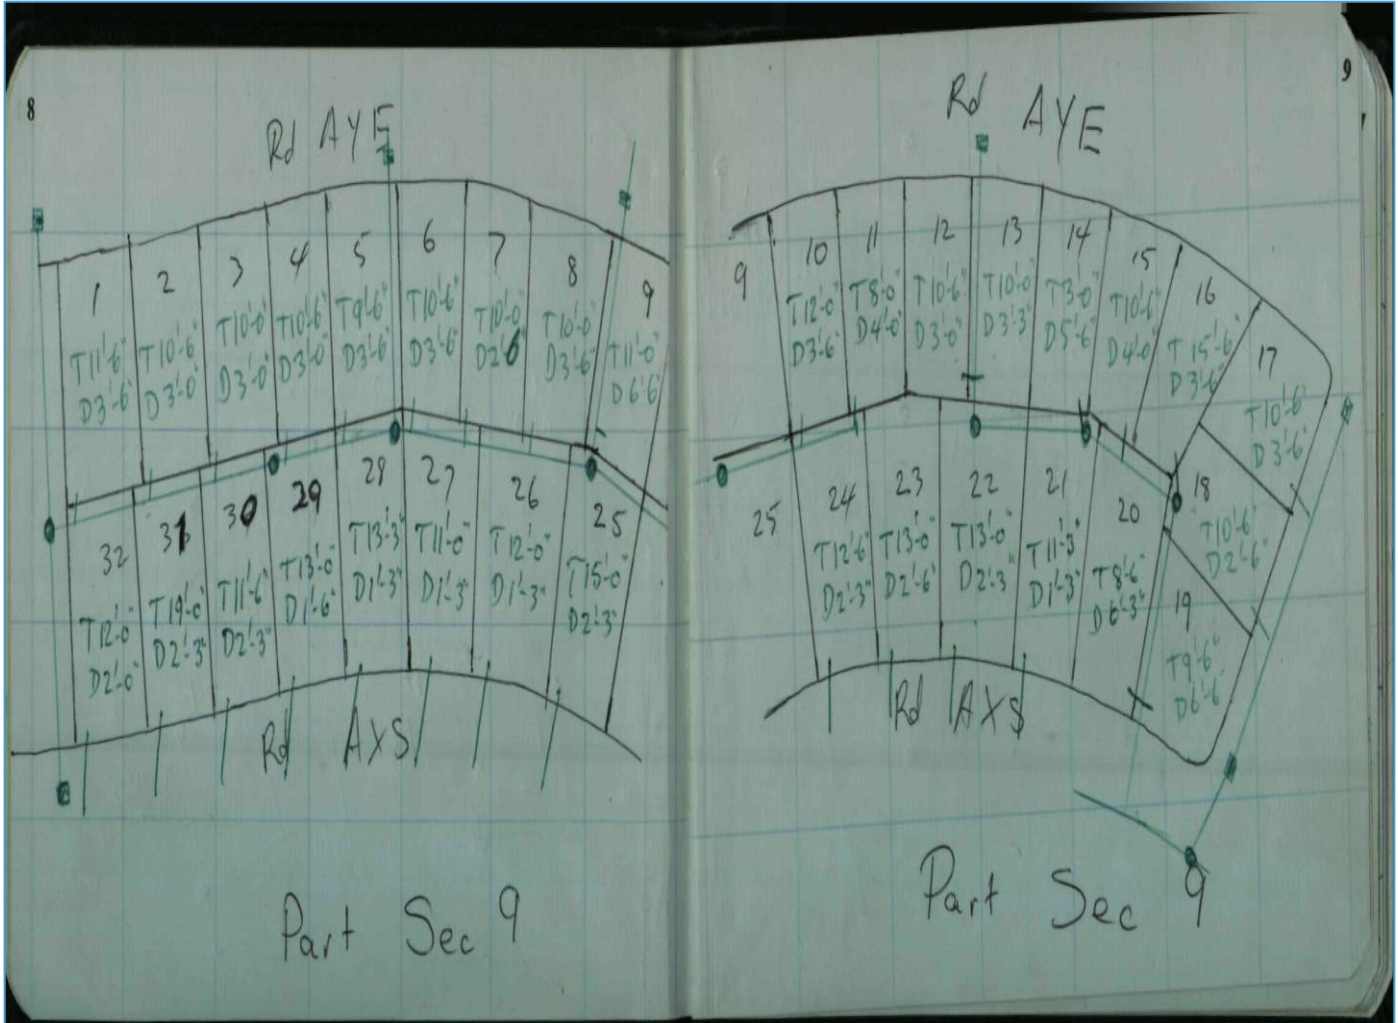 8
Rd AYE
1
T11'-6"
D3'-6"
2
T10'-6"
D3'-0"
3
T10'-0"
D3'-0"
4
T10'-6"
D3'-0"
5
T9'-6"
D3'-6"
6
T10'-6"
D3'-6"
7
T10'-0"
D2'-6"
8
T10'-0"
D3'-6"
9
T11'-0"
D6'-6"
32
T12'-0"
D2'-0"
31
T19'-0"
D2'-3"
30
T11'-6"
D2'-3"
29
T13'-0"
D1'-6"
28
T13'-3"
D1'-3"
27
T11'-0"
D1'-3"
26
T12'-0"
D1'-3"
25
T15'-0"
D2'-3"
Rd AXS
Part Sec 9
9
Rd AYE
9
10
T12'-0"
D3'-6"
11
T8'-0"
D4'-0"
12
T10'-6"
D3'-0"
13
T10'-0"
D3'-3"
14
T3'-0"
D5'-6"
15
T10'-6"
D4'-0"
16
T15'-6"
D3'-6"
17
T10'-6"
D3'-6"
18
T10'-6"
D2'-6"
19
T9'-6"
D6'-6"
25
24
T12'-6"
D2'-3"
23
T13'-0"
D2'-6"
22
T13'-0"
D2'-3"
21
T11'-3"
D1'-3"
20
T8'-6"
D6'-3"
Rd AXS
Part Sec 9